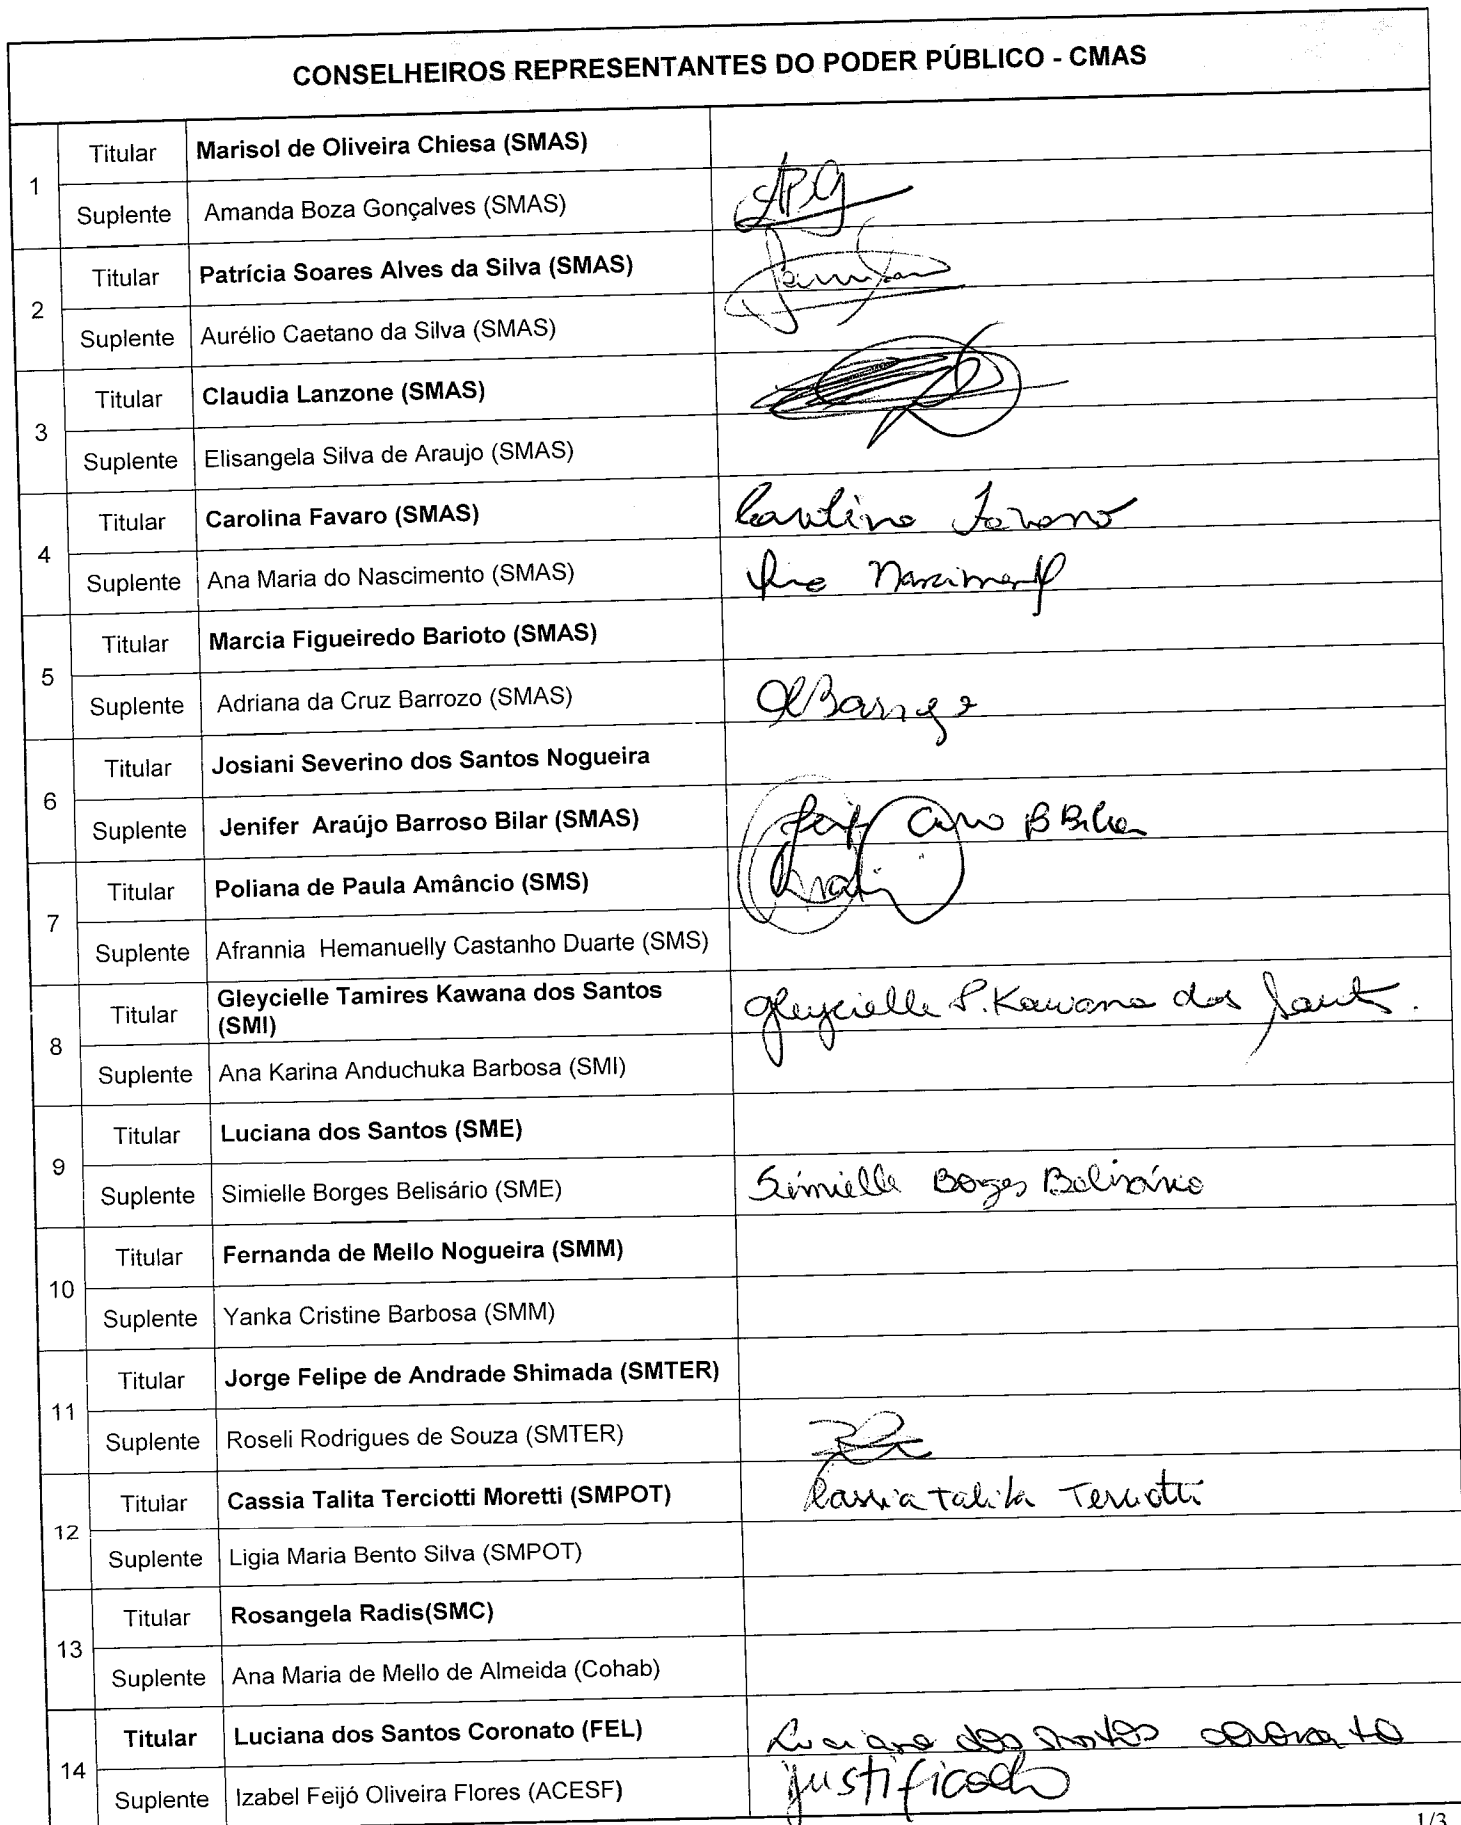 CONSELHEIROS REPRESENTANTES DO PODER PÚBLICO - CMAS
1
Titular Marisol de Oliveira Chiesa (SMAS)
Suplente Amanda Boza Gonçalves (SMAS)
2
Titular Patrícia Soares Alves da Silva (SMAS)
Suplente Aurélio Caetano da Silva (SMAS)
3
Titular Claudia Lanzone (SMAS)
Suplente Elisangela Silva de Araujo (SMAS)
4
Titular Carolina Favaro (SMAS) Carolina Favaro
Suplente Ana Maria do Nascimento (SMAS) Ana Nascimento
5
Titular Marcia Figueiredo Barioto (SMAS)
Suplente Adriana da Cruz Barrozo (SMAS)
6
Titular Josiani Severino dos Santos Nogueira
Suplente Jenifer Araújo Barroso Bilar (SMAS)
7
Titular Poliana de Paula Amâncio (SMS)
Suplente Afrannia Hemanuelly Castanho Duarte (SMS)
8
Titular Gleycielle Tamires Kawana dos Santos
(SMI) Gleycielle T. Kawana dos Santos.
Suplente Ana Karina Anduchuka Barbosa (SMI)
9
Titular Luciana dos Santos (SME)
Suplente Simielle Borges Belisário (SME) Simielle Borges Belisário
10
Titular Fernanda de Mello Nogueira (SMM)
Suplente Yanka Cristine Barbosa (SMM)
11
Titular Jorge Felipe de Andrade Shimada (SMTER)
Suplente Roseli Rodrigues de Souza (SMTER)
12
Titular Cassia Talita Terciotti Moretti (SMPOT) Cassia Talita Terciotti
Suplente Ligia Maria Bento Silva (SMPOT)
13
Titular Rosangela Radis(SMC)
Suplente Ana Maria de Mello de Almeida (Cohab)
14
Titular Luciana dos Santos Coronato (FEL) Luciana dos Santos Coronato
Suplente Izabel Feijó Oliveira Flores (ACESF) justificado
1/3